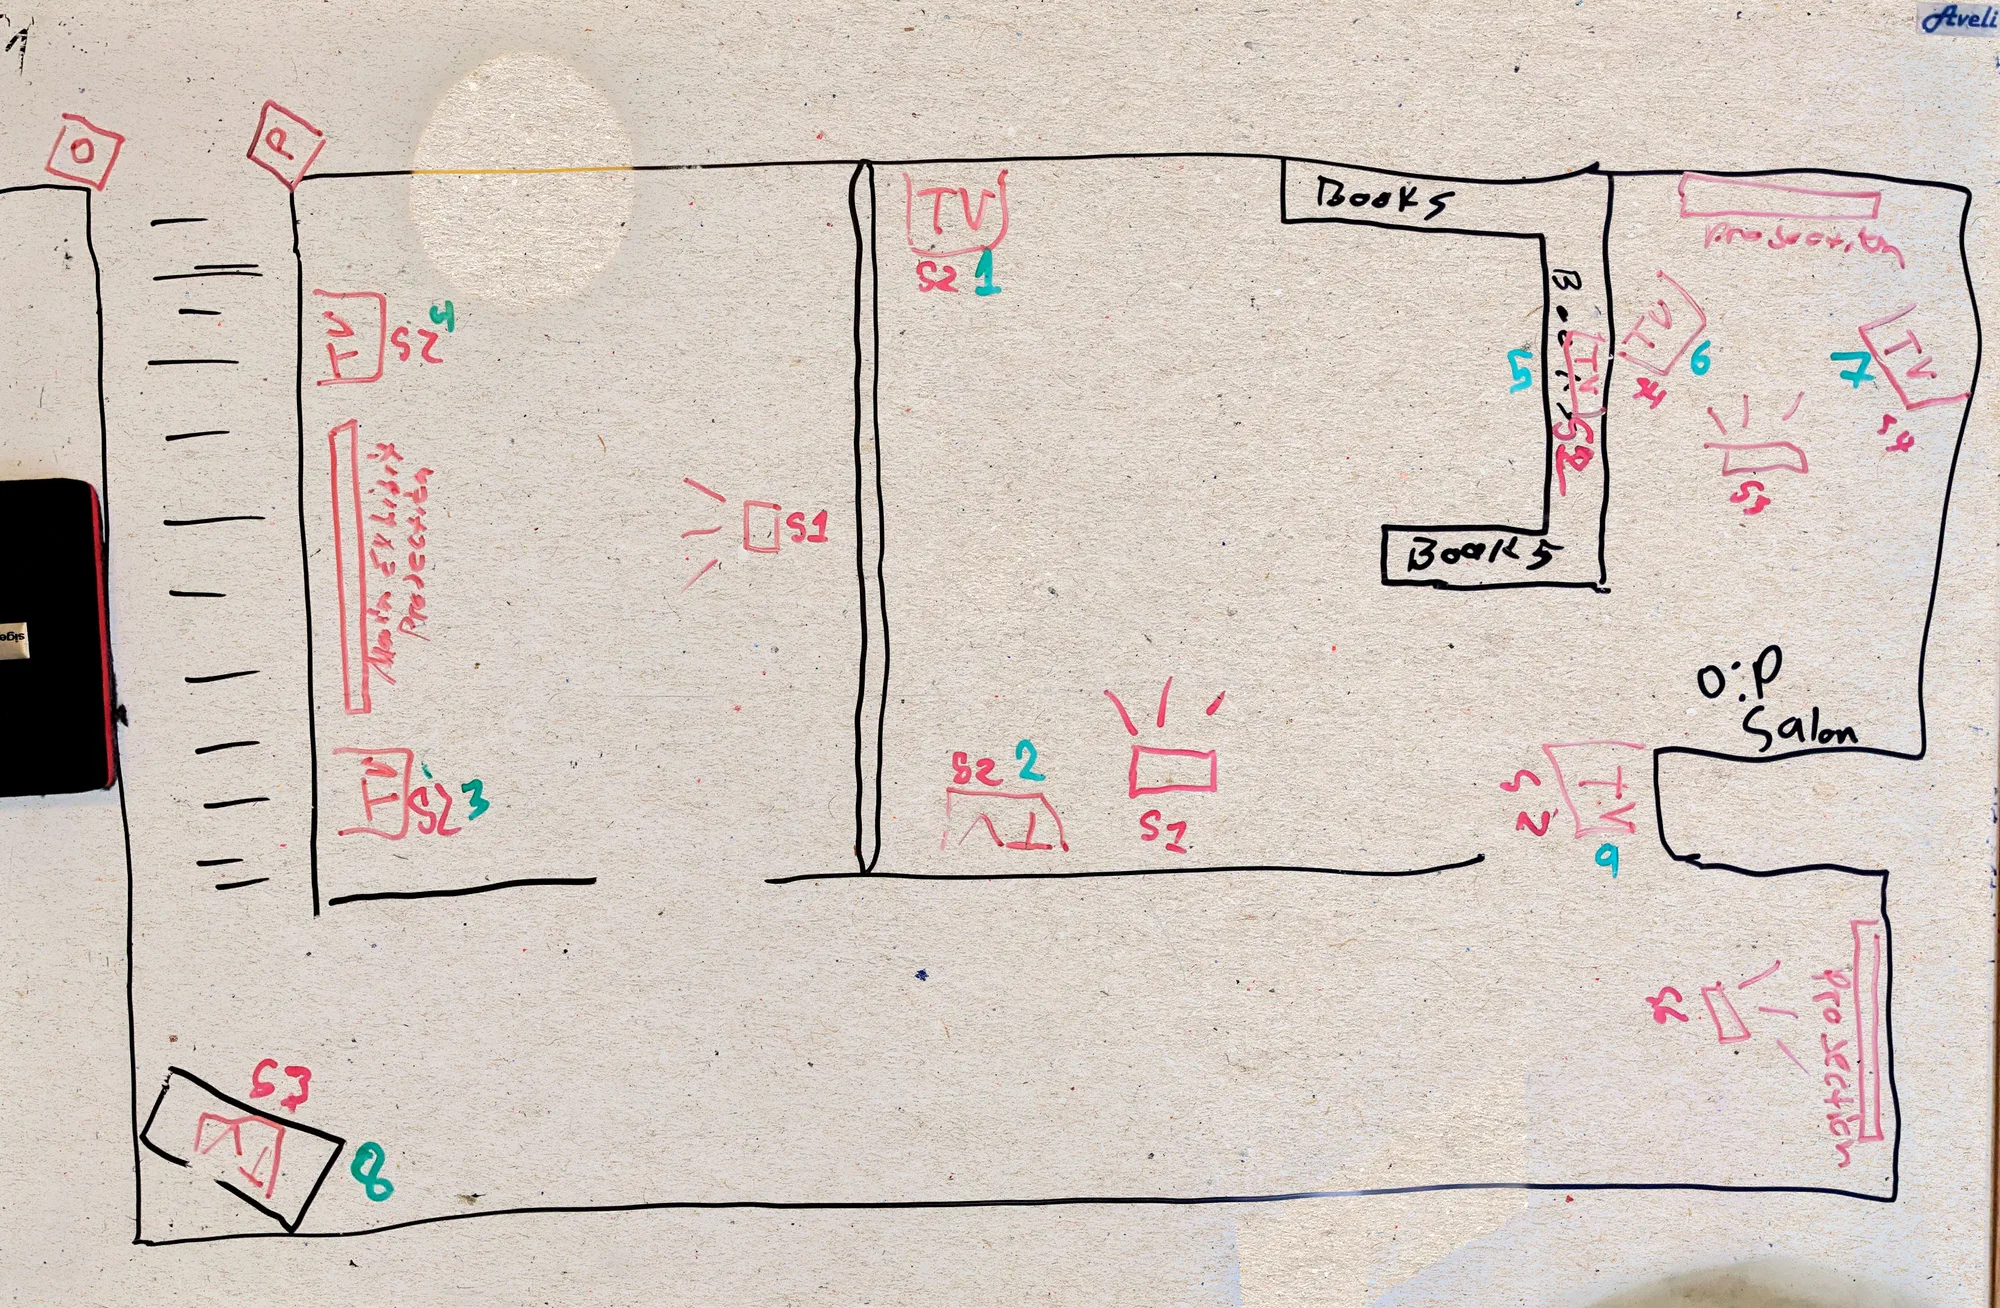 Aveli
O
P
TV
S2 1
Books
Books
TV
S2
5
Projection
TV
6
S4
TV
7
S4
S3
TV
S2 4
Main Exhibit
Projection
S1
Books
O:P
Salon
TV
S2 3
S2 2
TV
S1
TV
S2
9
Projection
S3
TV
8